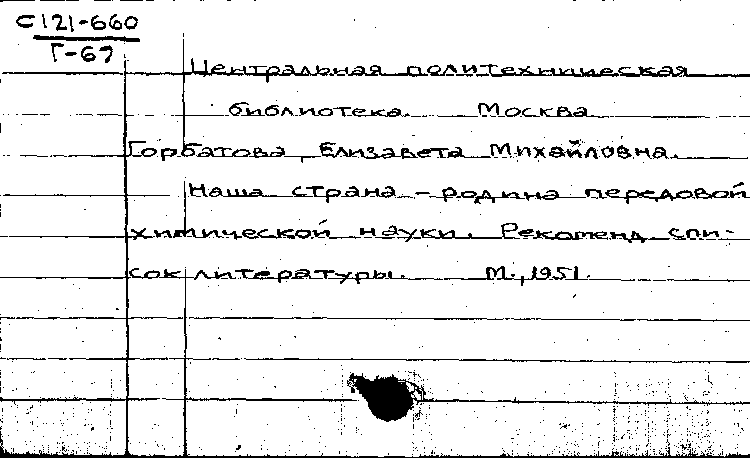 С121-660
Г-67
Центральная политехническая
библиотека. Москва
Горбатова, Елизавета Михайловна.
Наша страна – родина передовой
химической науки. Рекоменд. спи-
сок литературы. М., 1951.